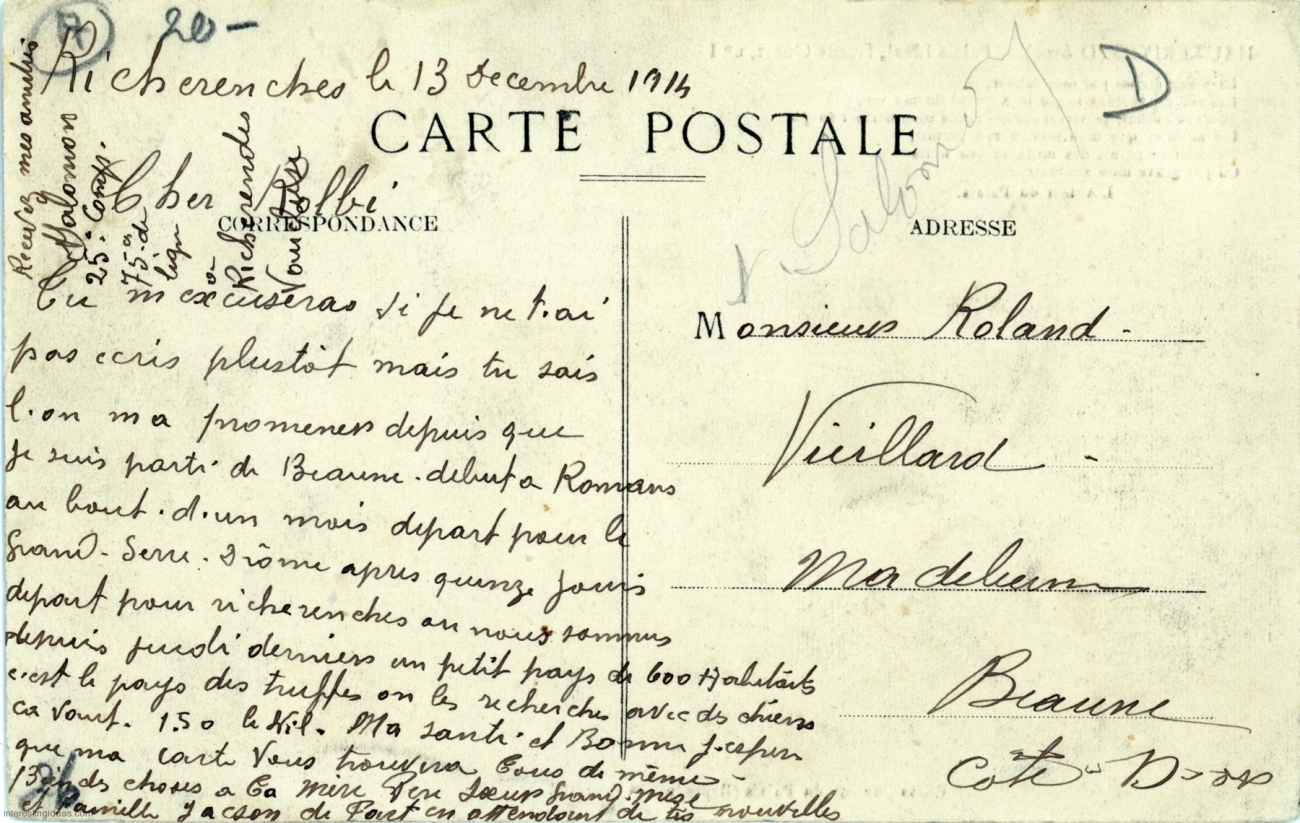 20-
Richerenches le 13 Decembre 1914
D
CARTE POSTALE
Cher
CORRESPONDANCE
ADRESSE
Tu m'excuseras si je ne t'ai
pas ecris plustôt mais tu sais
l'on m'a promener depuis que
Je suis parti de Beaune. debut a Romans
au bout d'un mois depart pour le
Grand-Serre. Drôme apres quinze jours
depart pour richerenches ou nous sommes
depuis jeudi derniers un petit pays de 600 Habitats
c'est le pays des truffes on les recherches avec ds chiens
ca vaut. 1.50 le Kil. Ma santé et Bonne J'espere
que ma carte Vous trouvera Tous de même -
Bien des choses a Ta Mère Père Sœur Grand-Mère
et Famille en attendant de tes nouvelles
Recevez mes amitiés
Salomon
25e Comp.
75es de
ligne
a
Richerendes
Vaucluse
Salomon
Monsieur Roland -
Vieillard -
Madeleine
Beaune
Côte-D-or
interestingideas.com